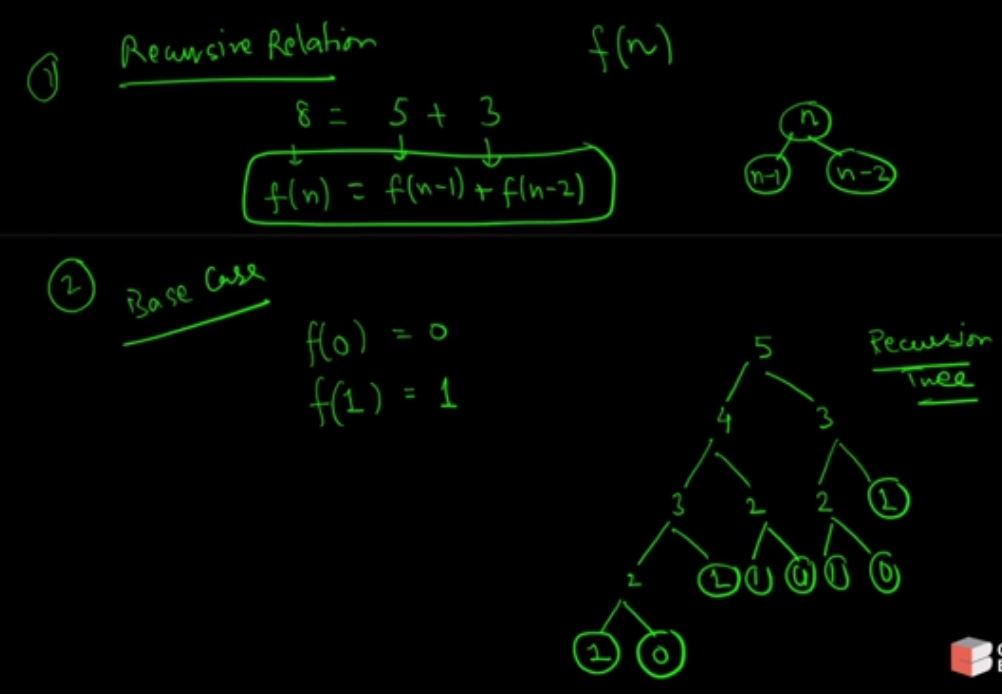 ① Recursive Relation
f(n)
8 = 5 + 3
f(n) = f(n-1) + f(n-2)
n
n-1 n-2
② Base Case
f(0) = 0
f(1) = 1
Recursion
Tree
5
4 3
3 2 2 1
2 1 1 0 1 0
1 0